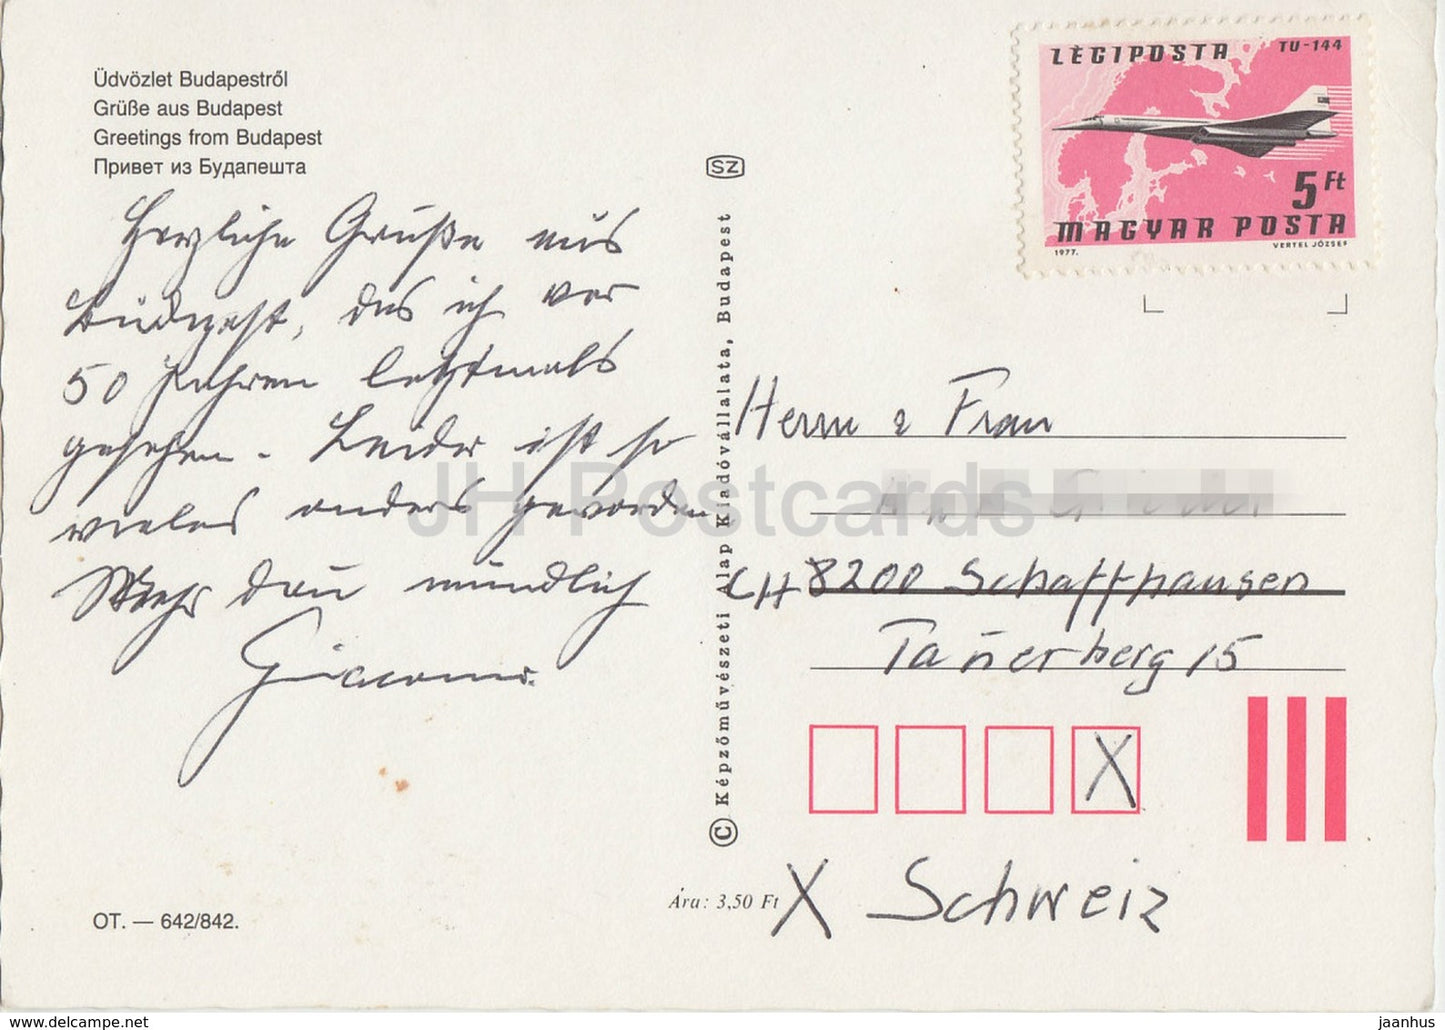 Üdvözlet Budapestről
Grüße aus Budapest
Greetings from Budapest
Привет из Будапешта
Herzliche Grüße aus
Budapest, das ich vor
50 Jahren letztmals
gesehen. Leider ist so
vieles anders geworden
Mehr dann mündlich
Giacomo.
OT. — 642/842.
SZ
© Képzőművészeti Alap Kiadóvállalata, Budapest
Ára: 3,50 Ft
LÉGIPOSTA TU-144
5 Ft
MAGYAR POSTA
1977. VERTEL JÓZSEF
Herrn & Frau
CH 8200 Schaffhausen
Tannerberg 15
X
X Schweiz
JH Postcards
www.delcampe.net
jaanhus